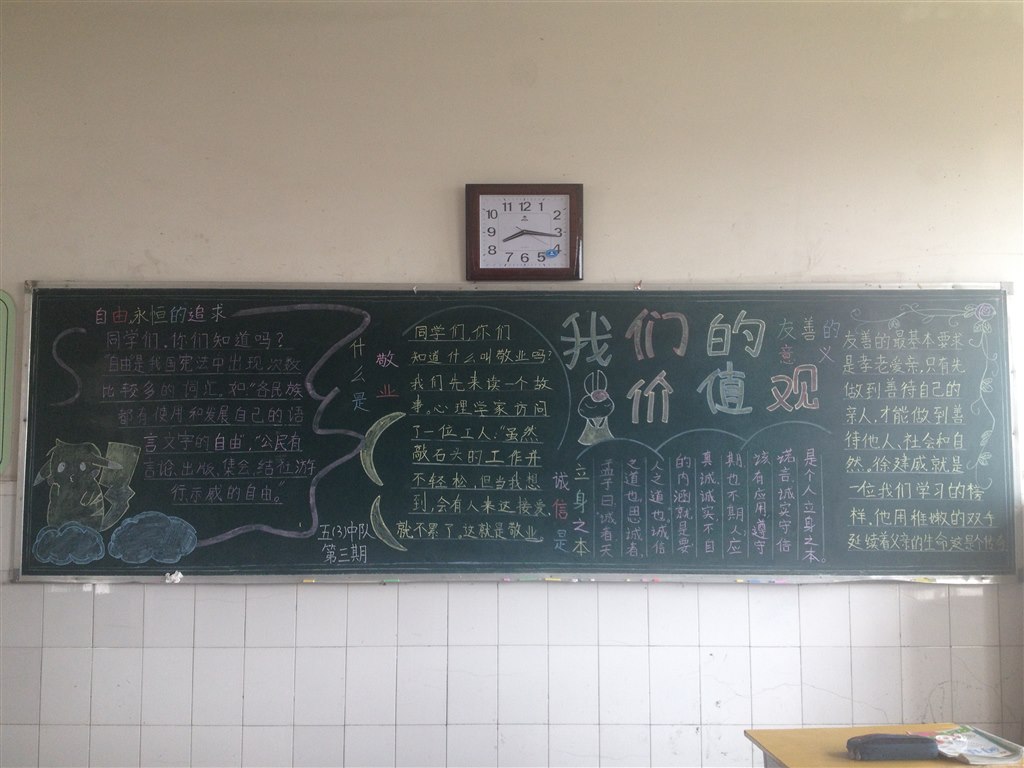 11 12 1
10 2
9 3
8 4
7 6 5
自由,永恒的追求
同学们,你们知道吗?
"自由是我国宪法中出现次数
比较多的词汇。如"各民族
都有使用和发展自己的语
言文字的自由","公民有
言论、出版、集会、结社、游
行示威的自由。"
五(3)中队
第三期
什么是
敬业
同学们,你们
知道什么叫敬业吗?
我们先来读一个故
事。心理学家访问
了一位工人:"虽然
敲石头的工作并
不轻松,但当我想
到,会有人来这接受,
就不累了。这就是敬业。
我们的
价值观
诚信是
立身之本
孟子曰"诚者天
之道也,思诚者,
人之道也。"诚信
的内涵就是要
真诚诚实、不自
期也不期人,应
该有应用遵守
诺言诚实守信
是个人立身之本。
友善的
意义
友善的最基本要求
是孝老爱亲,只有先
做到善待自己的
亲人,才能做到善
待他人、社会和自
然。徐建威就是
一位我们学习的榜
样,他用稚嫩的双手
延续着父亲的生命,这是个